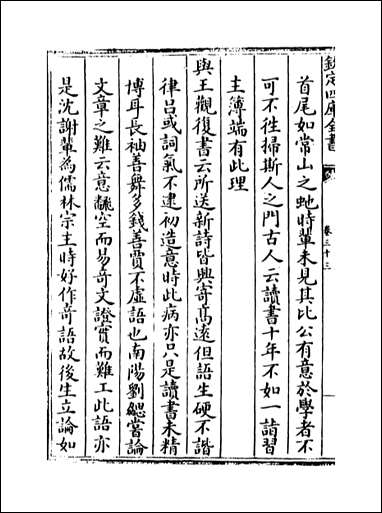 欽定四庫全書
卷三十三
首尾如常山之虵時輩未見其比公有意於學者不
可不徃掃斯人之門古人云讀書十年不如一詣習
主薄端有此理
與王觀復書云所送新詩皆興寄髙逺但語生硬不諧
律吕或詞氣不逮初造意時此病亦只是讀書未精
博耳長袖善舞多錢善賈不虚語也南陽劉勰嘗論
文章之難云意飜空而易竒文證實而難工此語亦
是沈謝輩為儒林宗主時好作竒語故後生立論如